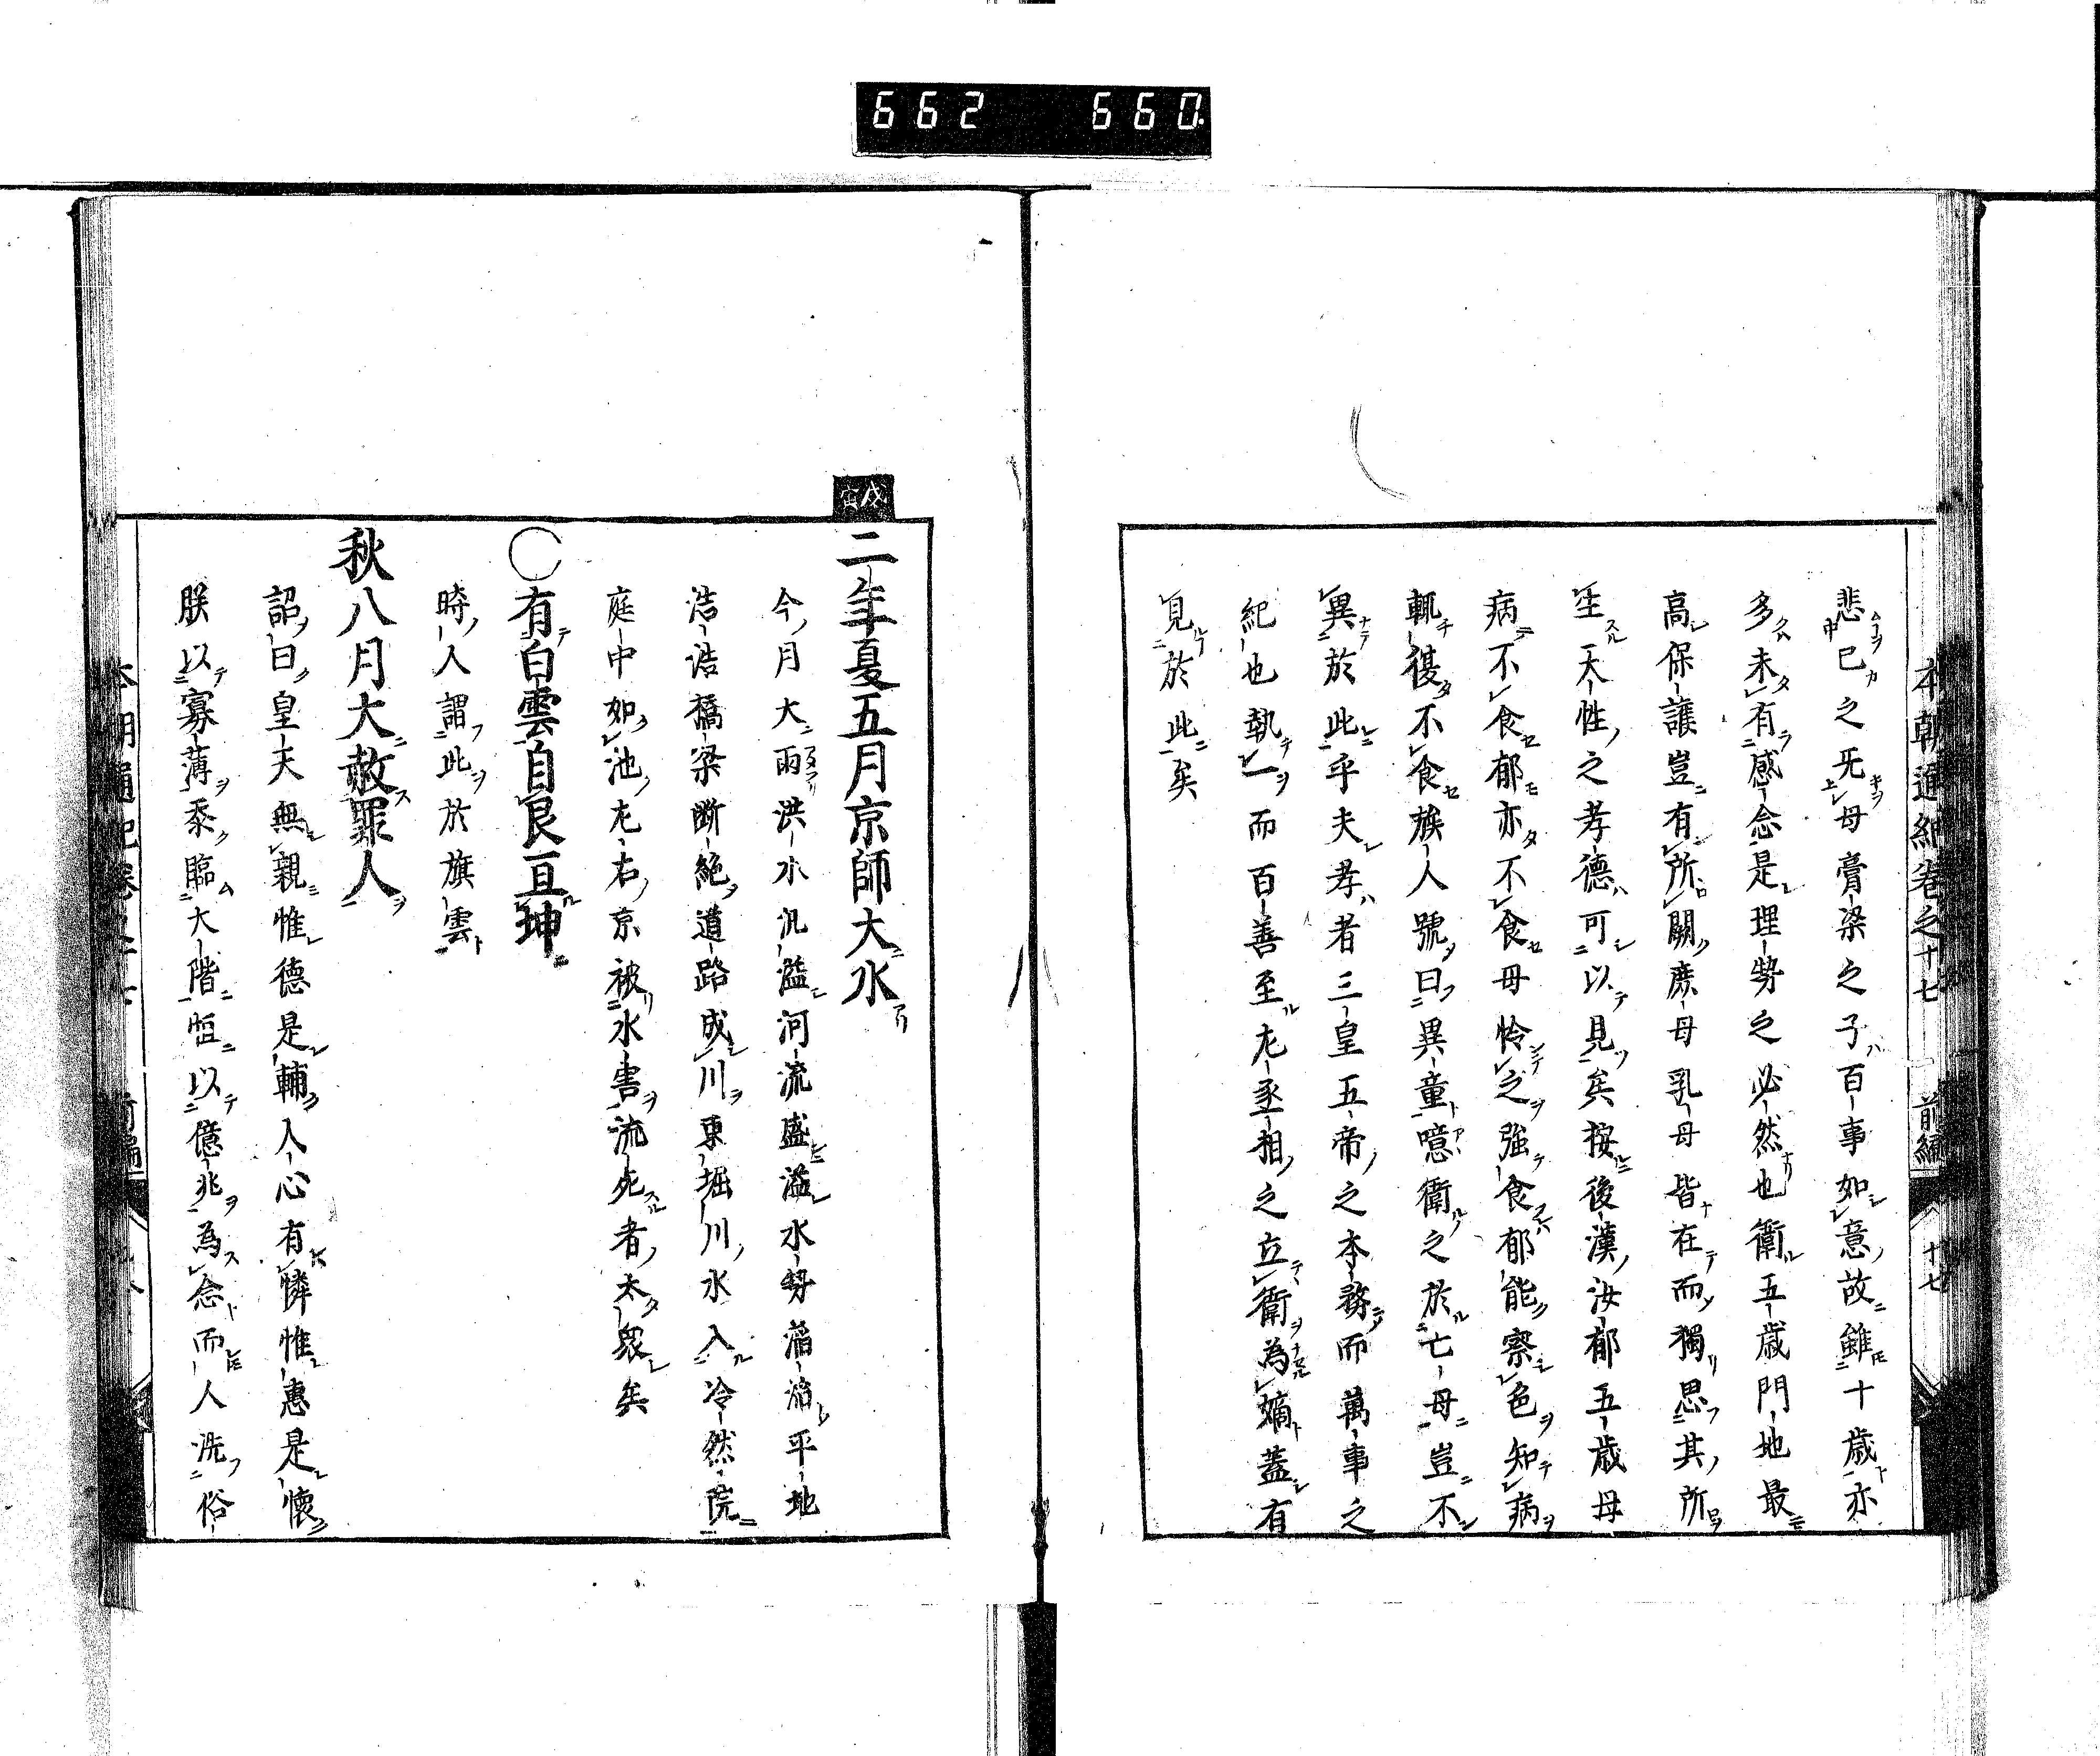 662 660
本朝通紀卷之十七 前編 十七
悲已之旡母膏梁之子百事如意故雖十歲亦
多未有感念是理勢之必然也衛五歲門地最
高保護豈有所闕庶母乳母皆在而獨思其所
生天性之孝德可以見矣按後漢汝郁五歲母
病不食郁亦不食母怜之強食郁能察色知病
輒復不食族人號曰異童噫衛之於亡母豈不
異於此乎夫孝者三皇五帝之本務而萬事之
紀也執一而百善至左丞相之立衛為嫡蓋有
見於此矣
戊寅
二年夏五月京師大水
今月大雨洪水汎溢河流盛溢水勢滔滔平地
浩浩橋梁斷絕道路成川東堀川水入冷然院
庭中如池左右京被水害流死者太衆矣
○有白雲自艮亘坤
時人謂此於旗雲
秋八月大赦罪人
詔曰皇天無親惟德是輔人心有憐惟惠是懷
朕以寡薄忝臨大階恒以億兆為念而人澆俗